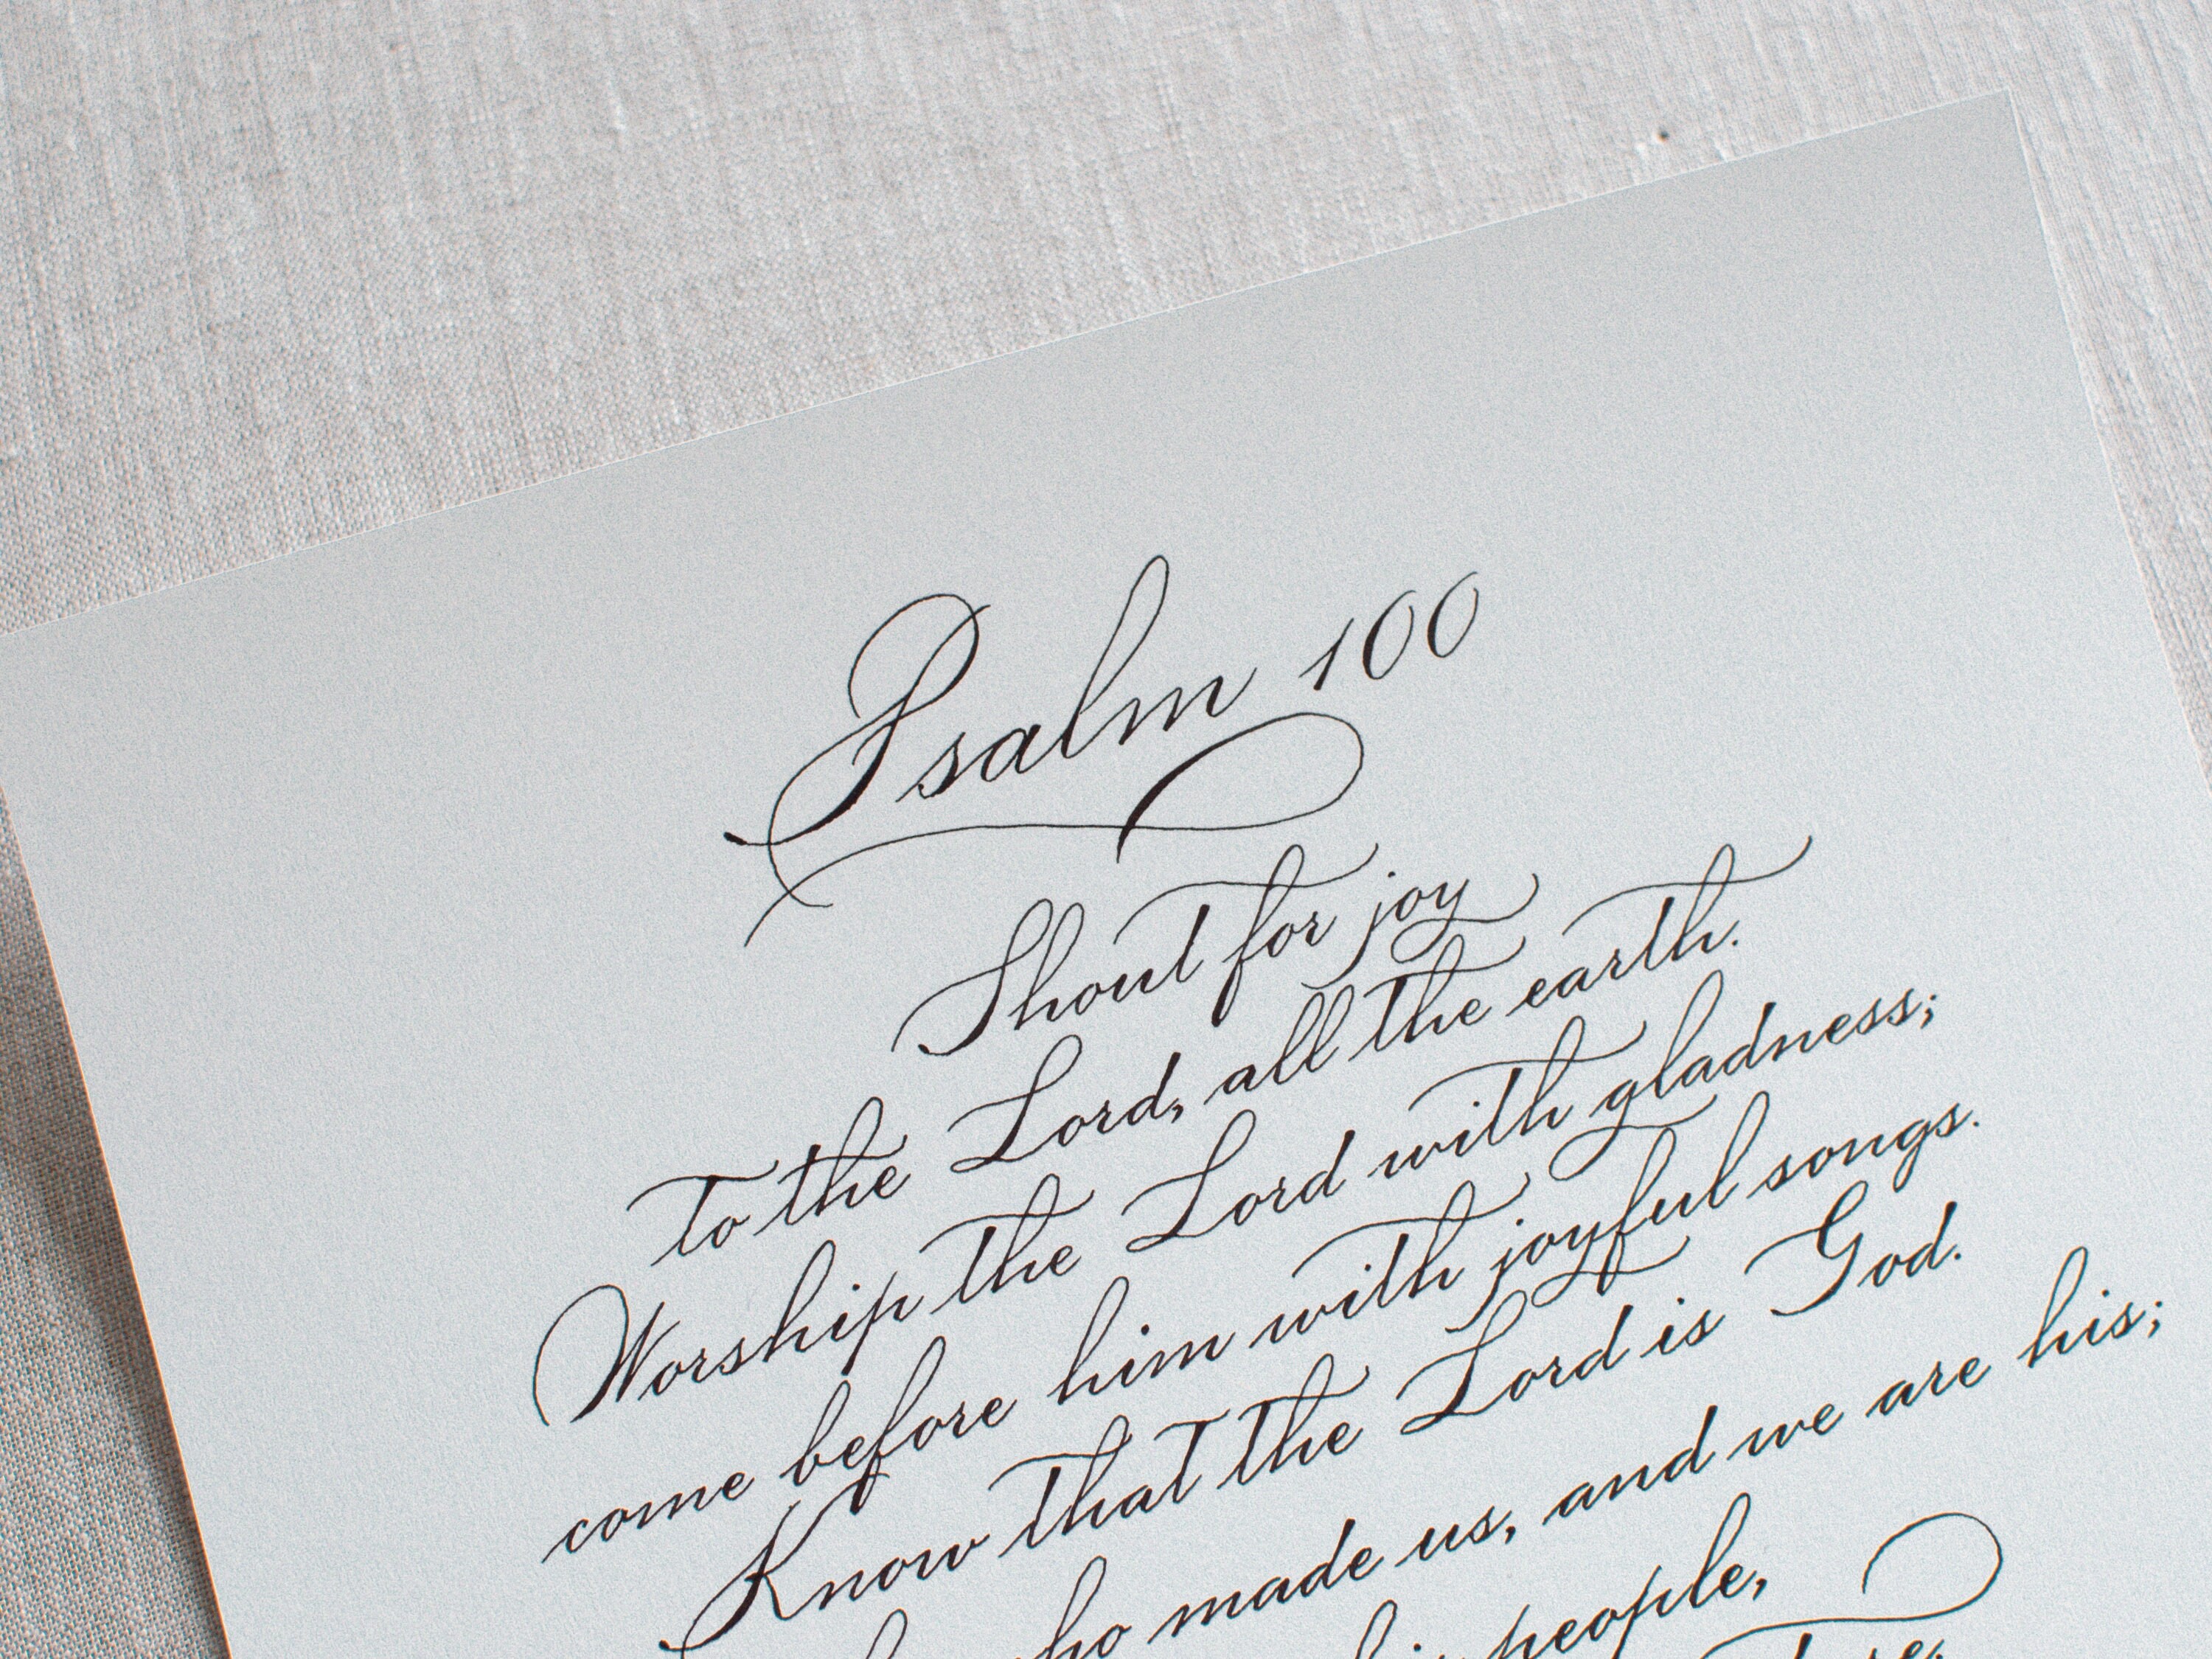 Psalm 100
Shout for joy
To the Lord, all the earth.
Worship the Lord with gladness;
come before him with joyful songs.
Know that the Lord is God.
who made us, and we are his;
people,